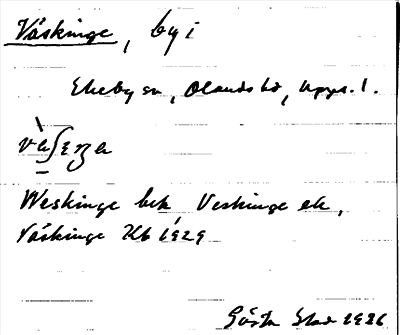 Väskinge, by i
Ekeby sn, Olands hd, Upps. l.
Weskinge bek Veskinge ek,
Väskinge Kb 1929
Gösta 1926